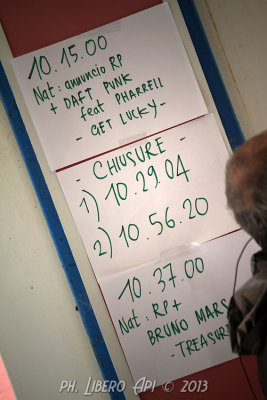 10.15.00
Nat: annuncio RP
+ DAFT PUNK
feat PHARRELL
- GET LUCKY -
- CHIUSURE -
1) 10.29.04
2) 10.56.20
10.37.00
Nat: RP +
BRUNO MARS
- TREASURE
PH. LIBERO API © 2013